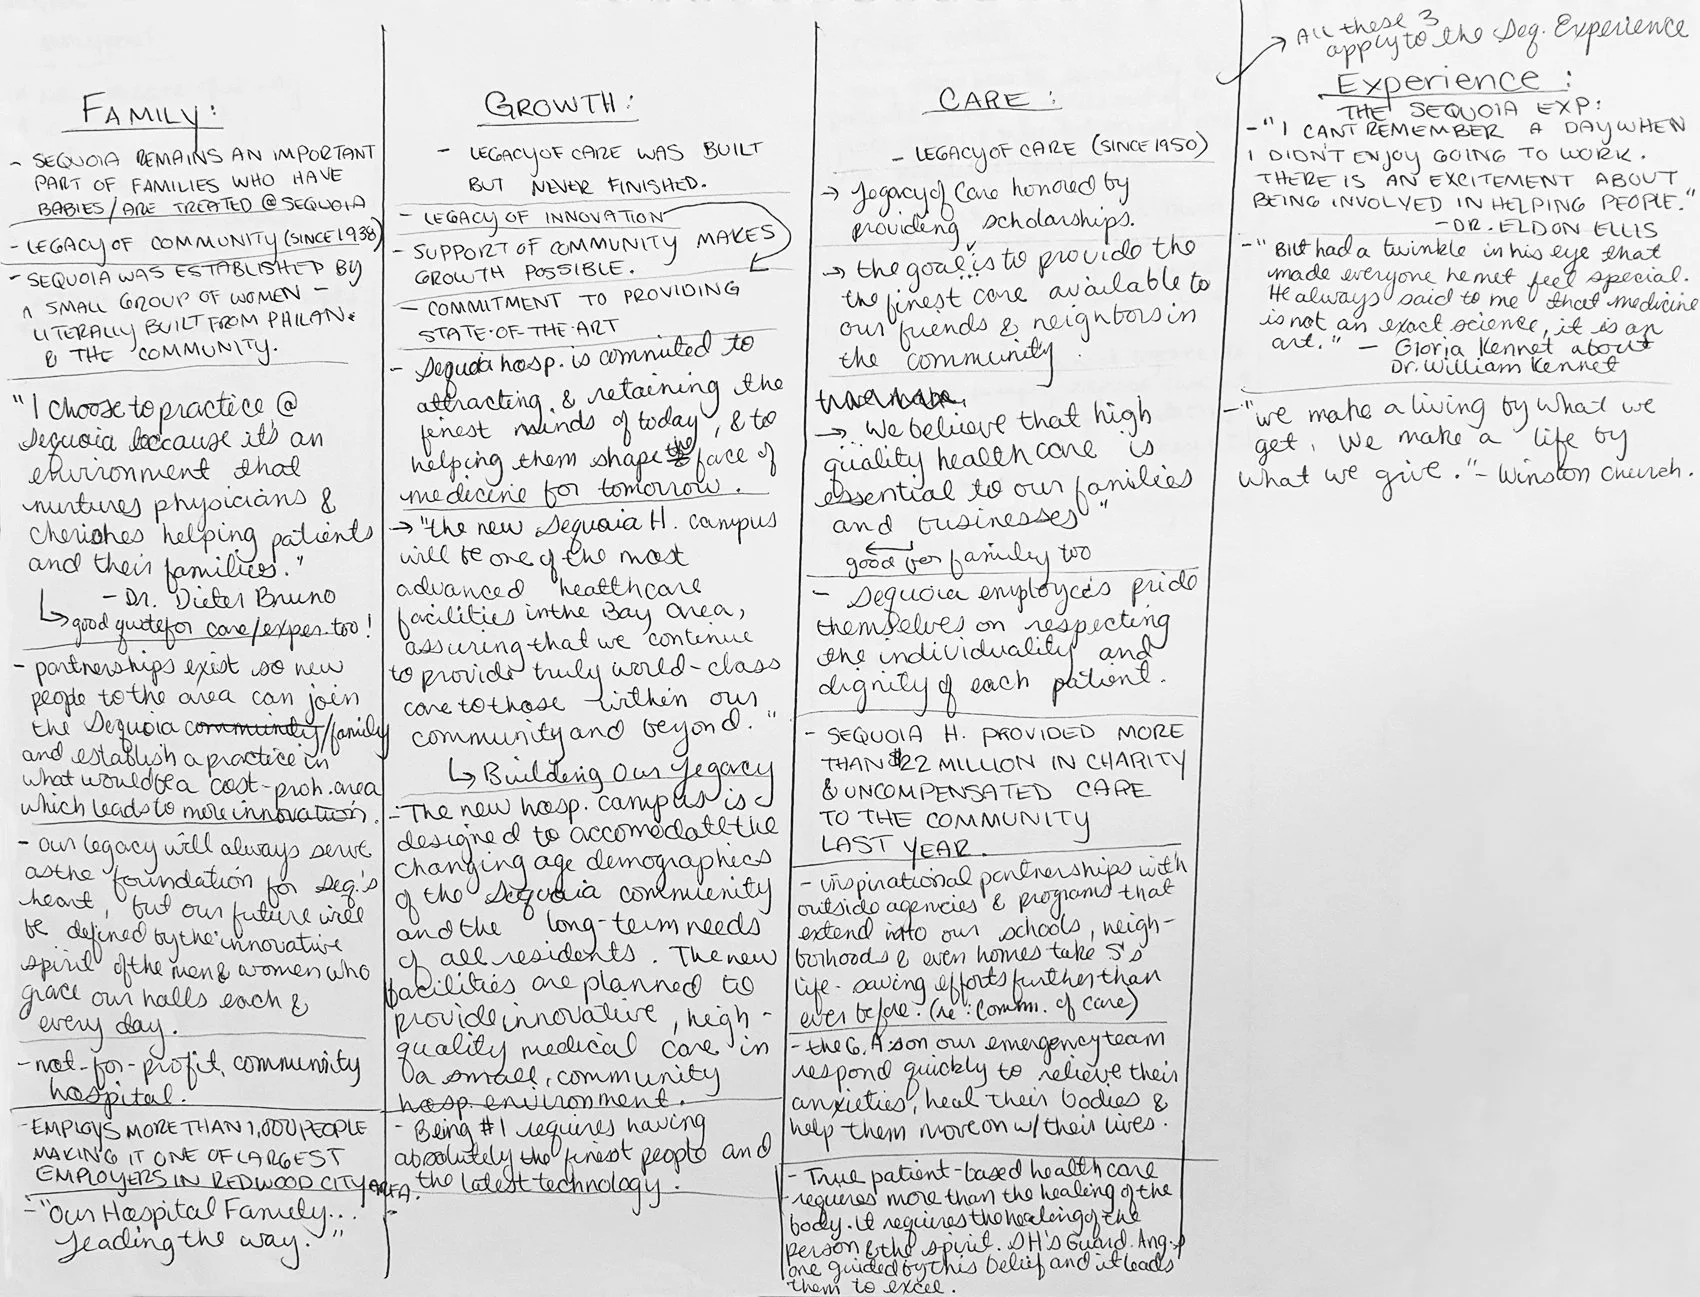 FAMILY:
- SEQUOIA REMAINS AN IMPORTANT
PART OF FAMILIES WHO HAVE
BABIES/ARE TREATED @ SEQUOIA
- LEGACY OF COMMUNITY (SINCE 1938)
- SEQUOIA WAS ESTABLISHED BY
A SMALL GROUP OF WOMEN -
LITERALLY BUILT FROM PHILAN.
& THE COMMUNITY.
"I choose to practice @
Sequoia because it's an
environment that
nurtures physicians &
cherishes helping patients
and their families."
- Dr. Dieter Bruno
↳ good quote for care/exper. too!
- partnerships exist so new
people to the area can join
the Sequoia community/family
and establish a practice in
what would be a cost-proh. area
which leads to more innovation.
- our legacy will always serve
as the foundation for Seq.'s
heart, but our future will
be defined by the innovative
spirit of the men & women who
grace our halls each &
every day.
- not-for-profit, community
hospital.
- EMPLOYS MORE THAN 1,000 PEOPLE
MAKING IT ONE OF LARGEST
EMPLOYERS IN REDWOOD CITY AREA.
- "Our Hospital Family...
Leading the way."
GROWTH:
- LEGACY OF CARE WAS BUILT
BUT NEVER FINISHED.
- LEGACY OF INNOVATION
- SUPPORT OF COMMUNITY MAKES
GROWTH POSSIBLE.
- COMMITMENT TO PROVIDING
STATE-OF-THE-ART
- Sequoia hosp. is commited to
attracting & retaining the
finest minds of today, & to
helping them shape the face of
medicine for tomorrow.
→ "the new Sequoia H. campus
will be one of the most
advanced healthcare
facilities in the Bay Area,
assuring that we continue
to provide truly world-class
care to those within our
community and beyond."
↳ Building Our Legacy
- The new hosp. campus is
designed to accomodate the
changing age demographics
of the Sequoia community
and the long-term needs
of all residents. The new
facilities are planned to
provide innovative, high-
quality medical care in
a small, community
hosp. environment.
- Being #1 requires having
absolutely the finest people and
the latest technology.
CARE:
- LEGACY OF CARE (SINCE 1950)
→ Legacy of Care honored by
providing scholarships.
→ the goal is to provide the
the finest care available to
our friends & neighbors in
the community.
→ We believe that high
quality health care is
essential to our families
and businesses"
good for family too
- Sequoia employees pride
themselves on respecting
the individuality and
dignity of each patient.
- SEQUOIA H. PROVIDED MORE
THAN $22 MILLION IN CHARITY
& UNCOMPENSATED CARE
TO THE COMMUNITY
LAST YEAR.
- inspirational partnerships with
outside agencies & programs that
extend into our schools, neigh-
borhoods & even homes take S's
life-saving efforts further than
ever before. (re: Comm. of care)
- the G.A.'s on our emergency team
respond quickly to relieve their
anxieties, heal their bodies &
help them move on w/ their lives.
- True patient-based healthcare
requires more than the healing of the
body. It requires the healing of the
person & the spirit. SH's Guard. Ang.
are guided by this belief and it leads
them to excel.
→ All these 3
apply to the Seq. Experience
Experience:
THE SEQUOIA EXP:
- "I CAN'T REMEMBER A DAY WHEN
I DIDN'T ENJOY GOING TO WORK.
THERE IS AN EXCITEMENT ABOUT
BEING INVOLVED IN HELPING PEOPLE."
- DR. ELDON ELLIS
- "Bill had a twinkle in his eye that
made everyone he met feel special.
He always said to me that medicine
is not an exact science, it is an
art." - Gloria Kennet about
Dr. William Kennet
- "we make a living by what we
get, We make a life by
what we give." - Winston Church.